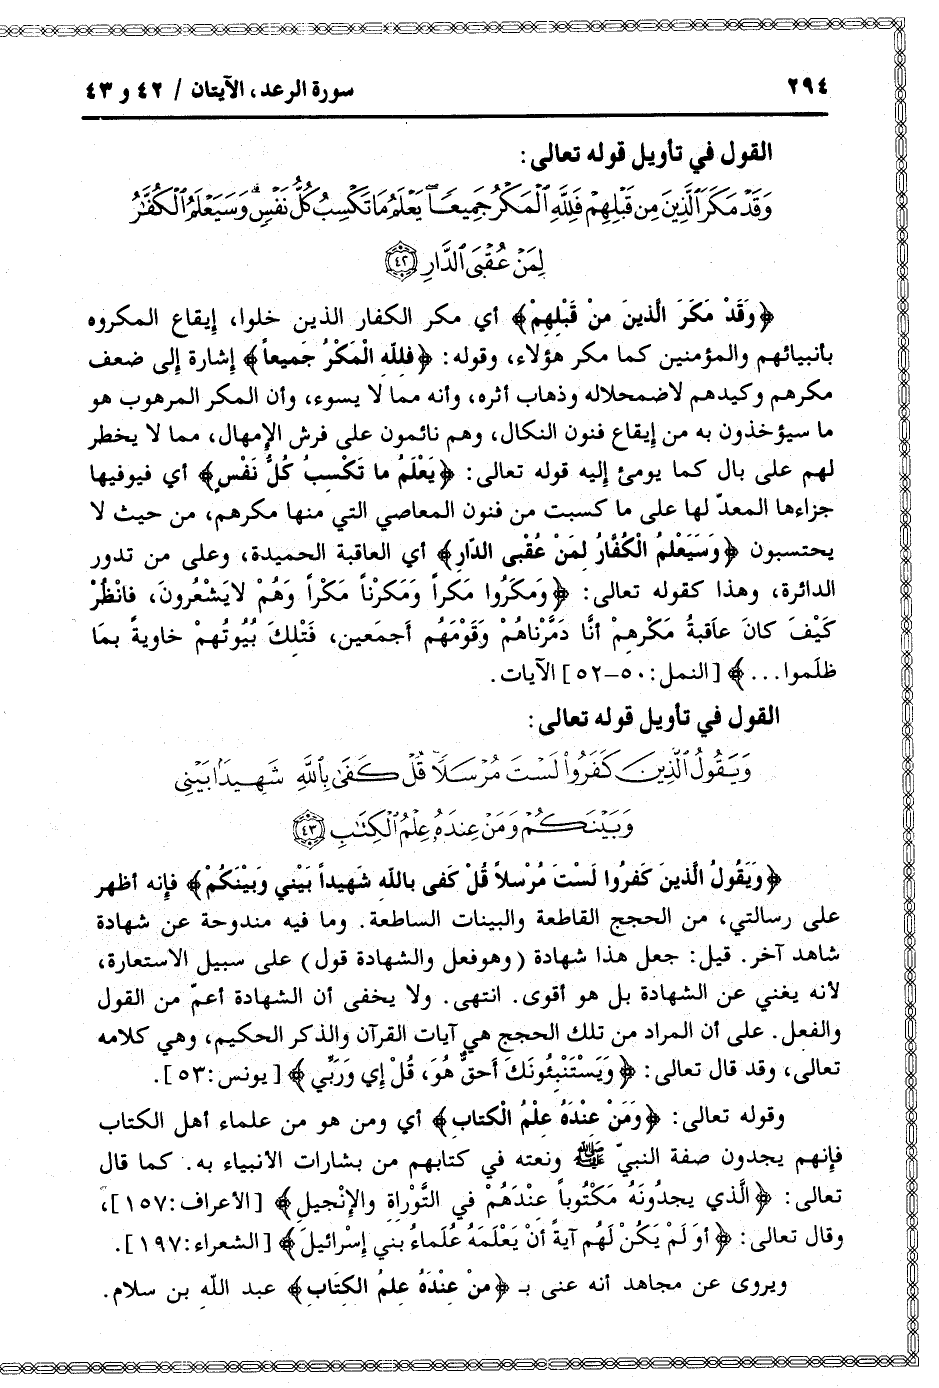 ٢٩٤ سورة الرعد، الآيتان / ٤٢ و ٤٣
القول في تأويل قوله تعالى:
وَقَدْ مَكَرَ ٱلَّذِينَ مِن قَبْلِهِمْ فَلِلَّهِ ٱلْمَكْرُ جَمِيعًا يَعْلَمُ مَا تَكْسِبُ كُلُّ نَفْسٍ وَسَيَعْلَمُ ٱلْكُفَّٰرُ
لِمَنْ عُقْبَى ٱلدَّارِ ٤٢
﴿وَقَدْ مَكَرَ الَّذينَ منْ قَبْلِهِمْ﴾ أي مكر الكفار الذين خلوا، إيقاع المكروه
بأنبيائهم والمؤمنين كما مكر هؤلاء، وقوله: ﴿فللَّه الْمَكْرُ جَميعاً﴾ إشارة إلى ضعف
مكرهم وكيدهم لاضمحلاله وذهاب أثره، وأنه مما لا يسوء، وأن المكر المرهوب هو
ما سيؤخذون به من إيقاع فنون النكال، وهم نائمون على فرش الإمهال، مما لا يخطر
لهم على بال كما يومئ إليه قوله تعالى: ﴿يَعْلَمُ ما تَكْسبُ كُلُّ نَفْسٍ﴾ أي فيوفيها
جزاءها المعدّ لها على ما كسبت من فنون المعاصي التي منها مكرهم، من حيث لا
يحتسبون ﴿وَسَيَعْلمُ الْكُفَّارُ لمَنْ عُقْبى الدَّارِ﴾ أي العاقبة الحميدة، وعلى من تدور
الدائرة، وهذا كقوله تعالى: ﴿وَمَكَرُوا مَكراً وَمَكرْناً مَكْراً وَهُمْ لايَشْعُرونَ، فانْظُرْ
كَيْفَ كانَ عاَقبةُ مَكْرهمْ أنَّا دَمَّرْناهُمْ وَقَوْمَهُم أجمَعين، فَتْلكَ بُيُوتُهمْ خاويةً بمَا
ظلَموا...﴾ [النمل: ٥٠-٥٢] الآيات.
القول في تأويل قوله تعالى:
وَيَقُولُ ٱلَّذِينَ كَفَرُوا۟ لَسْتَ مُرْسَلًا قُلْ كَفَىٰ بِٱللَّهِ شَهِيدًۢا بَيْنِى
وَبَيْنَكُمْ وَمَنْ عِندَهُۥ عِلْمُ ٱلْكِتَٰبِ ٤٣
﴿وَيَقُولُ الَّذينَ كَفَروا لَسْتَ مُرْسلاً قُلْ كَفى باللَّه شَهيداً بَيْني وَبَيْنَكُمْ﴾ فإنه أظهر
على رسالتي، من الحجج القاطعة والبينات الساطعة. وما فيه مندوحة عن شهادة
شاهد آخر. قيل: جعل هذا شهادة (وهوفعل والشهادة قول) على سبيل الاستعارة،
لأنه يغني عن الشهادة بل هو أقوى. انتهى. ولا يخفى أن الشهادة أعمّ من القول
والفعل. على أن المراد من تلك الحجج هي آيات القرآن والذكر الحكيم، وهي كلامه
تعالى، وقد قال تعالى: ﴿وَيَسْتَنْبئُونَكَ أَحَقٌّ هُوَ، قُلْ إي وَرَبِّي﴾ [يونس: ٥٣].
وقوله تعالى: ﴿وَمَنْ عنْدَهُ علْمُ الْكتاب﴾ أي ومن هو من علماء أهل الكتاب
فإنهم يجدون صفة النبيّ ﷺ ونعته في كتابهم من بشارات الأنبياء به. كما قال
تعالى: ﴿الَّذي يجدُونَهُ مَكْتُوباً عنْدَهُمْ في التَّوْراة والإنْجيل﴾ [الأعراف: ١٥٧]،
وقال تعالى: ﴿أوَ لَمْ يَكُنْ لَهُم آيةً أنْ يَعْلَمَهُ عُلَماءُ بني إسْرائيلَ﴾ [الشعراء: ١٩٧].
ويروى عن مجاهد أنه عنى بـ ﴿منْ عِنْدَهُ علمُ الكتاب﴾ عبد اللَّه بن سلام.